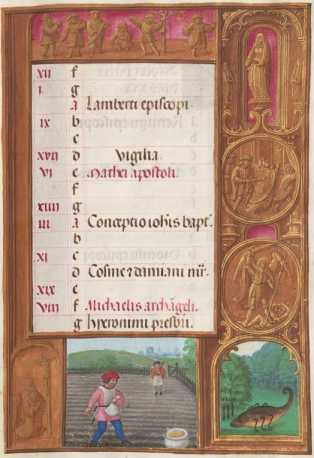 xii f
i g
a Lamberti episcopi.
ix b
c
xvii d Vigilia.
vi e Mathei apostoli.
f
xiiii g
iii a Conceptio iohis bapt.
b
xi c
d Cosme & damiani mr.
xix e
viii f Michaelis archageli.
g Hieronimi presbri.